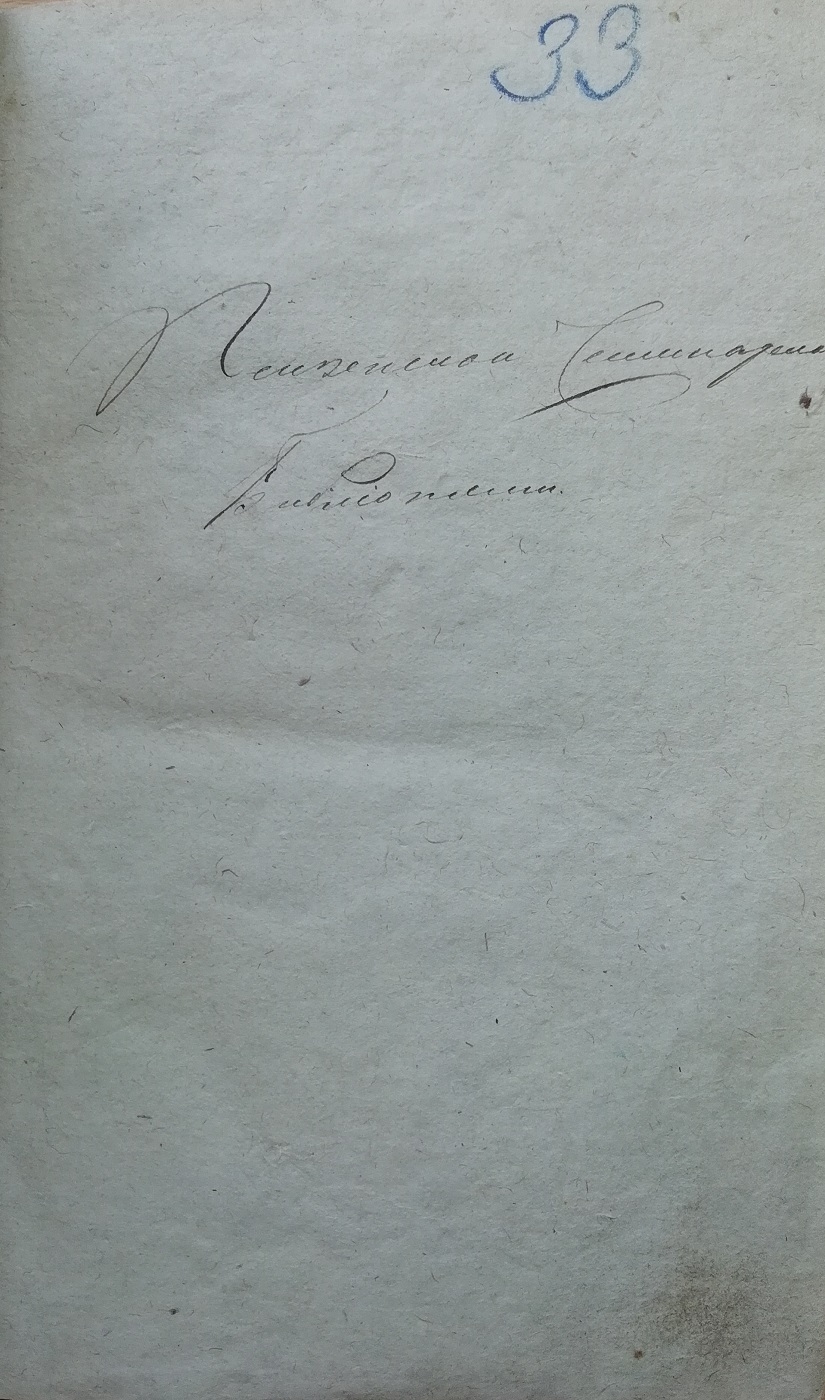 33
Пензенской Семинарско
Библіотеки.